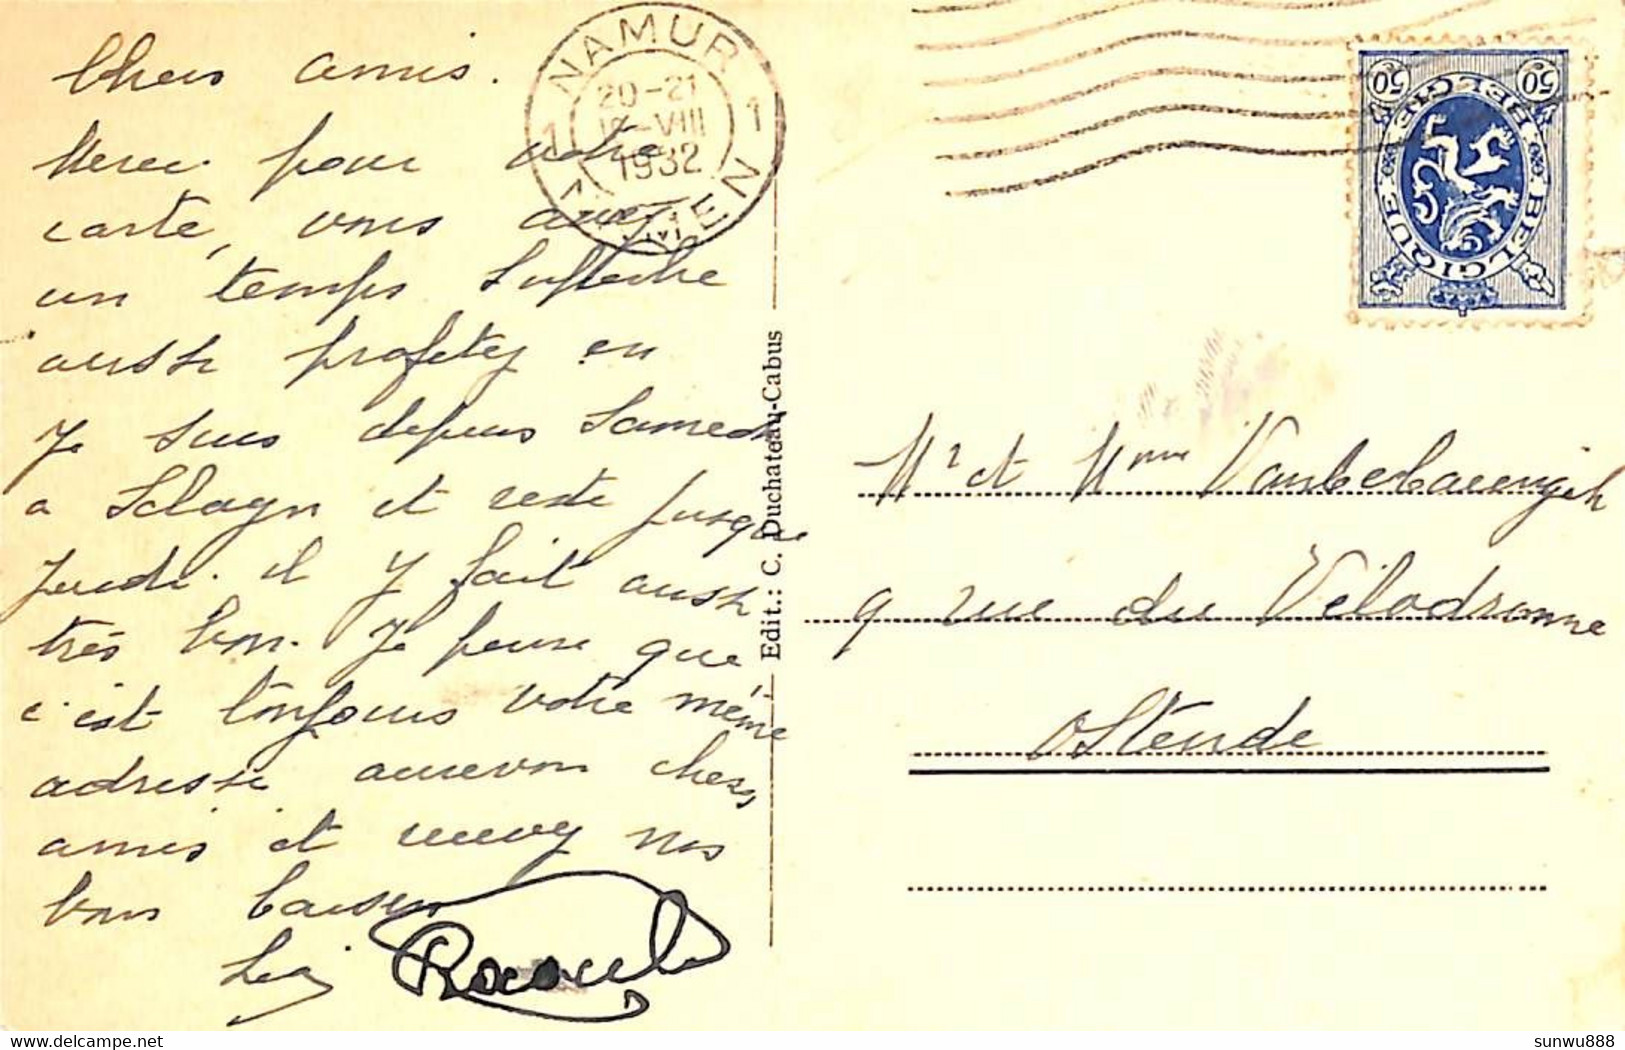 Chers amis.
Merci pour votre
carte, vous avez
un temps superbe
aussi profitez en
Je suis depuis samedi
a Sclayn et reste jusque
jeudi. il y fait aussi
très bon. Je pense que
c'est toujours votre même
adresse aurevoir chers
amis et recevez nos
bons baisers
Raoul
NAMUR
1 1
20-21
VIII
1932
NAMEN
Edit.: C. Duchateau-Cabus
BELGIQUE BELGIË
50 50
Mr et Mme
9 rue du Vélodrome
Ostende
sunwu888